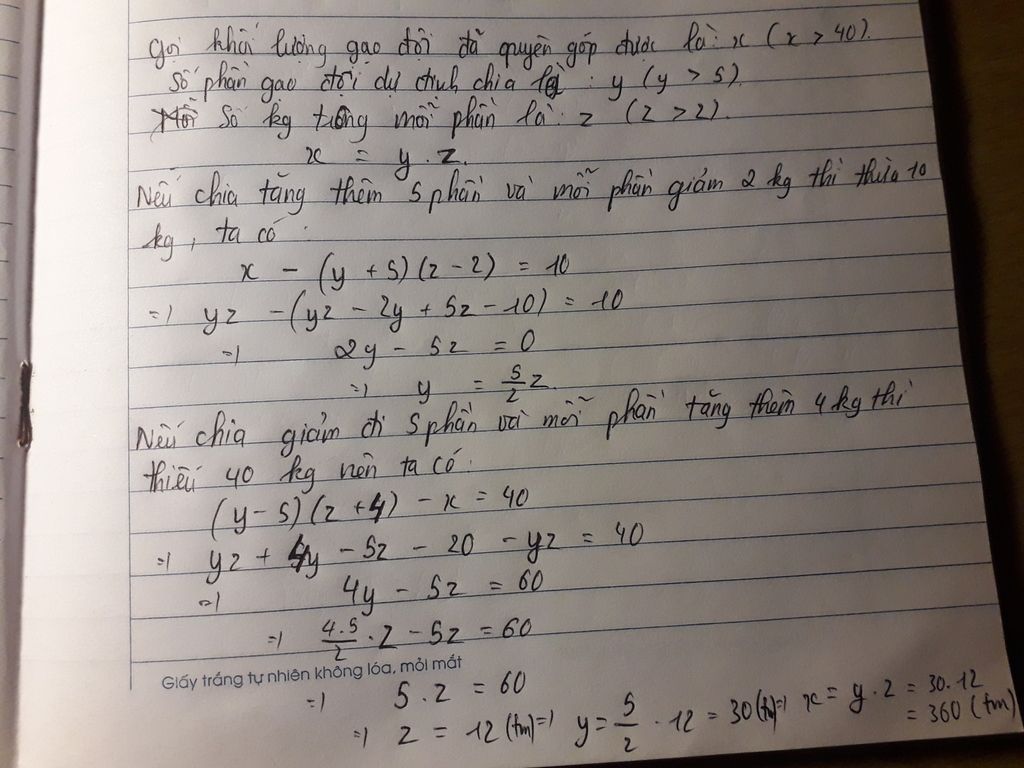 Gọi khối lượng gạo đội đã quyên góp được là: x (x > 40).
Số phần gạo đội dự định chia là: y (y > 5).
Số kg trong mỗi phần là: z (z > 2).
x = y . z.
Nếu chia tăng thêm 5 phần và mỗi phần giảm 2 kg thì thừa 10
kg, ta có:
x - (y + 5)(z - 2) = 10
=> yz - (yz - 2y + 5z - 10) = 10
=> 2y - 5z = 0
=> y = 5/2 z
Nếu chia giảm đi 5 phần và mỗi phần tăng thêm 4 kg thì
thiếu 40 kg nên ta có:
(y - 5)(z + 4) - x = 40
=> yz + 4y - 5z - 20 - yz = 40
=> 4y - 5z = 60
=> 4.5/2 . z - 5z = 60
Giấy trắng tự nhiên không lóa, mỏi mắt
=> 5 . z = 60
=> z = 12 (tm) => y = 5/2 . 12 = 30 (tm) => x = y . z = 30.12
= 360 (tm)